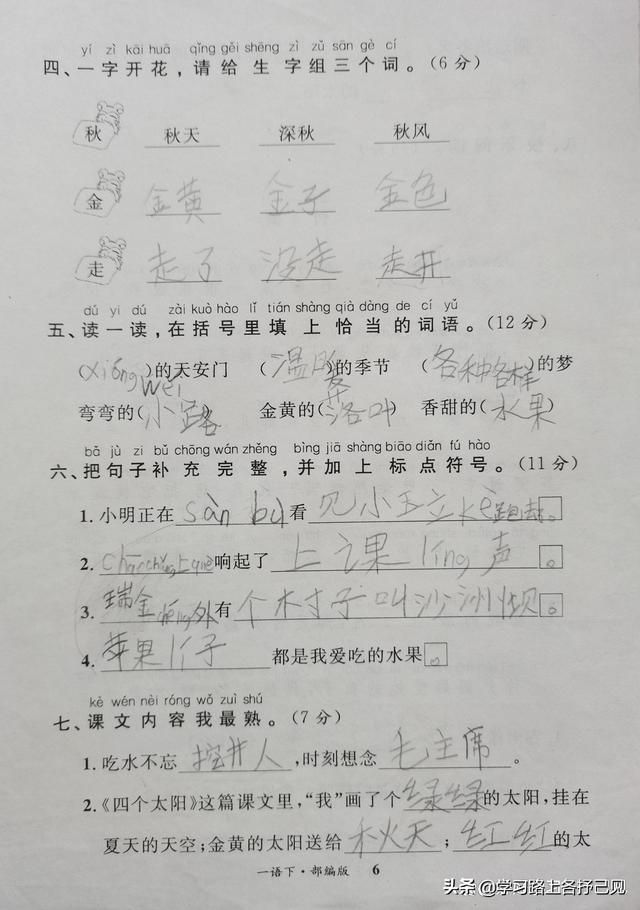 yí zì kāi huā qǐng gěi shēng zì zǔ sān gè cí
四、一字开花，请给生字组三个词。(6分)
秋 秋天 深秋 秋风
金 金黄 金子 金色
走 走了 没走 走开
dú yi dú zài kuò hào lǐ tián shàng qià dàng de cí yǔ
五、读一读，在括号里填上恰当的词语。(12分)
(xióng wěi)的天安门 (温暖)的季节 (各种各样)的梦
弯弯的(小路) 金黄的(落叶) 香甜的(水果)
bǎ jù zi bǔ chōng wán zhěng bìng jiā shàng biāo diǎn fú hào
六、把句子补充完整，并加上标点符号。(11分)
1. 小明正在sàn bù看见小玉立kè跑去。
2. 响起了上课líng声。
3. 瑞金chéng外有个村子叫沙洲坝。
4. 苹果 都是我爱吃的水果。
kè wén nèi róng wǒ zuì shú
七、课文内容我最熟。(7分)
1. 吃水不忘挖井人，时刻想念毛主席。
2.《四个太阳》这篇课文里，“我”画了个绿绿的太阳，挂在
夏天的天空；金黄的太阳送给秋天；红红的太
一语下·部编版 6
头条 @学习路上各抒己见